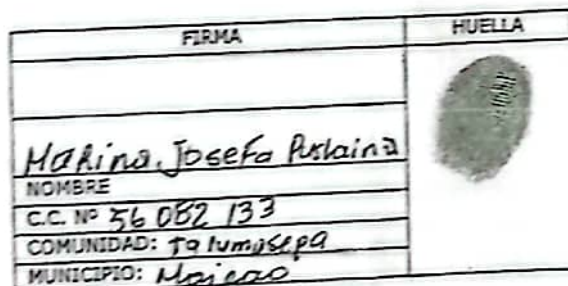 FIRMA HUELLA
Marina Josefa Pushaina
NOMBRE
C.C. Nº 56 082 133
COMUNIDAD: Talumusepa
MUNICIPIO: Maicao